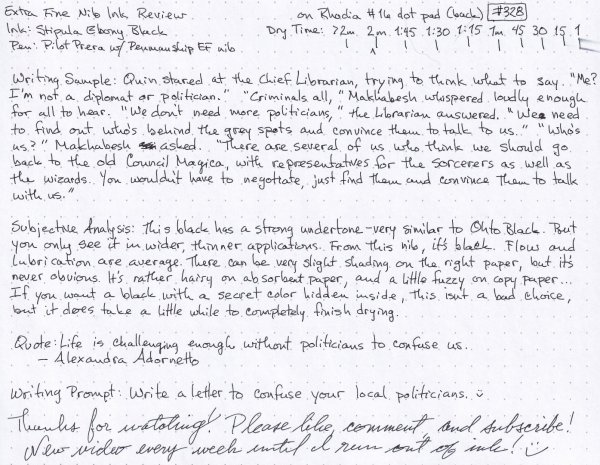 Extra Fine Nib Ink Review on Rhodia #16 dot pad (back) #328
Ink: Stipula Ebony Black Dry Time: >2m 2m 1:45 1:30 1:15 1m 45 30 15 1
Pen: Pilot Prera w/ Penmanship EF nib
Writing Sample: Quin stared at the Chief Librarian, trying to think what to say. "Me?
I'm not a diplomat or politician." "Criminals all," Makhabesh whispered loudly enough
for all to hear. "We don't need more politicians," the Librarian answered. "We need
to find out who's behind the grey spots and convince them to talk to us." "Who's
us?" Makhabesh asked. "There are several of us who think we should go
back to the old Council Magica, with representatives for the sorcerers as well as
the wizards. You wouldn't have to negotiate, just find them and convince them to talk
with us."
Subjective Analysis: This black has a strong undertone - very similar to Ohto Black. But
you only see it in wider, thinner applications. From this nib, it's black. Flow and
lubrication are average. There can be very slight shading on the right paper, but it's
never obvious. It's rather hairy on absorbent paper, and a little fuzzy on copy paper...
If you want a black with a secret color hidden inside, this isn't a bad choice,
but it does take a little while to completely finish drying.
Quote: Life is challenging enough without politicians to confuse us.
- Alexandra Adornetto
Writing Prompt: Write a letter to confuse your local politicians. :)
Thanks for watching! Please like, comment, and subscribe!
New video every week until I run out of ink! :)